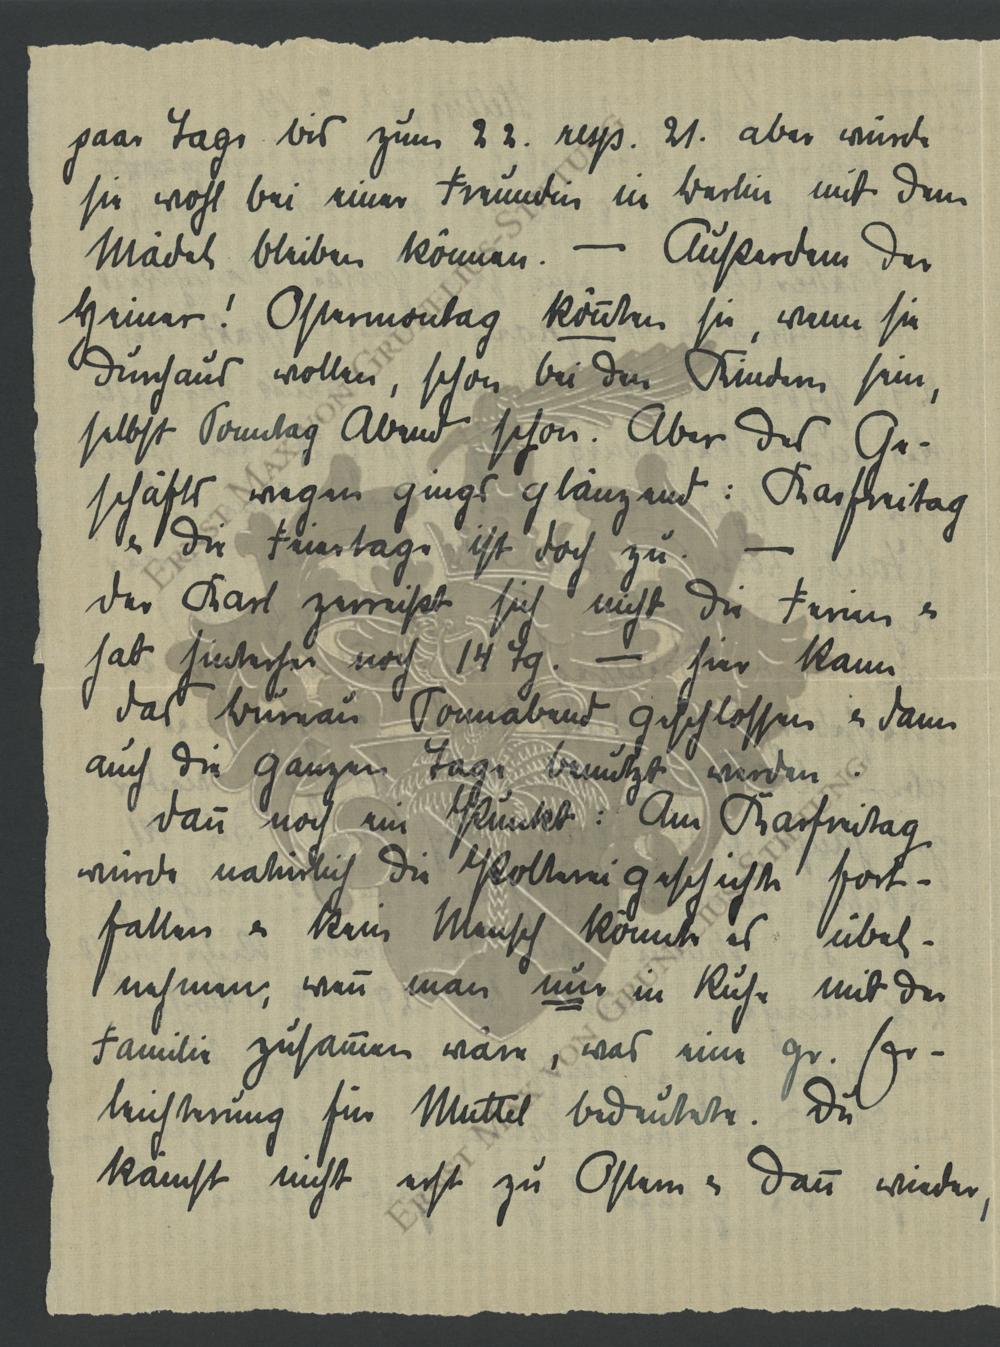 paar Tage bis zum 22. resp. 21. aber würde
sie wohl bei einer Freundin in Berlin mit dem
Mädel bleiben können. — Außerdem der
Heiner! Ostermontag könnten sie, wenn sie
durchaus wollen, schon bei den Kindern sein,
selbst Sonntag Abend schon. Aber des Ge-
schäfts wegen gings glänzend: Karfreitag
u die Feiertage ist doch zu. —
der Karl zerreißt sich nicht die Ferien u
hat hinterher noch 14 Tg. — hier kann
das Büreau Sonnabend geschlossen u dann
auch die ganzen Tage benützt werden.
dan̄ noch ein Punkt: Am Karfreitag
würde natürlich die Poltereigeschichte fort-
fallen u kein Mensch könnte es übel-
nehmen, wen̄ man nur in Ruhe mit der
Familie zusam̄en wäre, was eine gr. Er-
leichterung für Muttel bedeutete. Du
kämst nicht erst zu Ostern u dan̄ wieder,
Ernst Max von Grunelius-Stiftung
Ernst Max von Grunelius-Stiftung